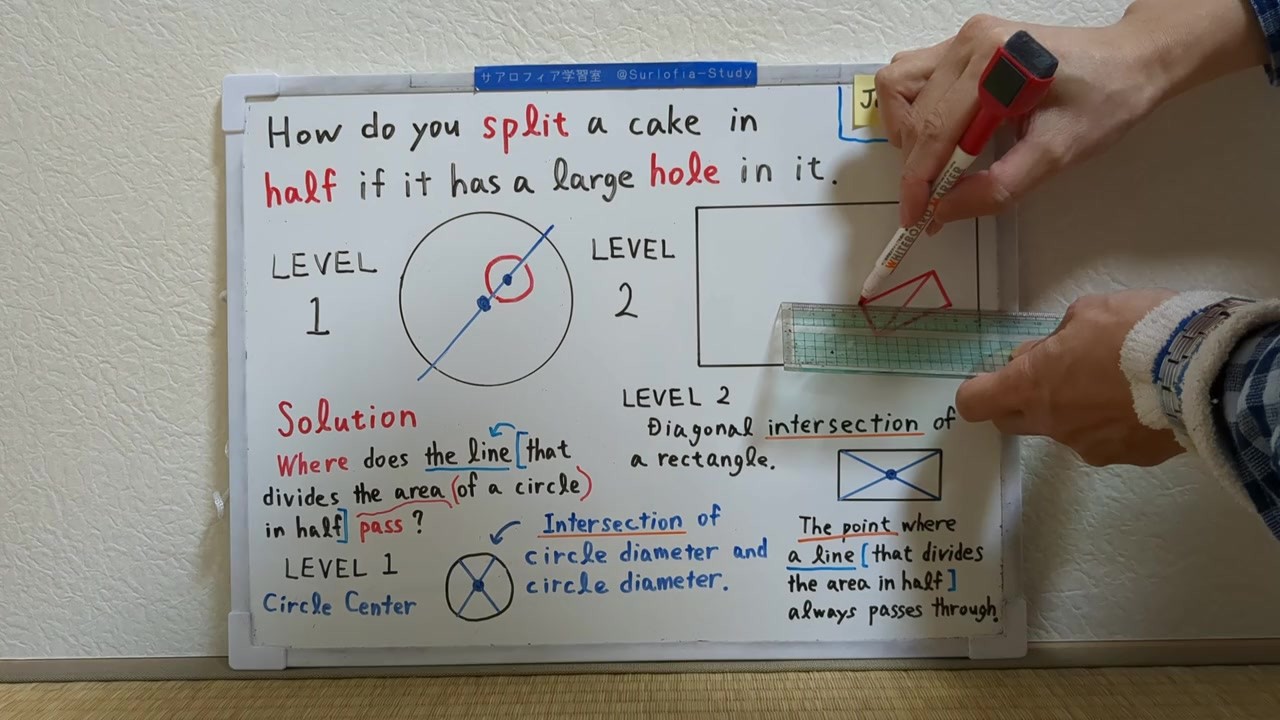 サアロフィア学習室 @Surlofia-Study
How do you split a cake in
half if it has a large hole in it.
LEVEL
1
LEVEL
2
Solution
Where does the line [that
divides the area (of a circle)
in half] pass?
LEVEL 1
Circle Center
Intersection of
circle diameter and
circle diameter.
LEVEL 2
Diagonal intersection of
a rectangle.
The point where
a line [that divides
the area in half]
always passes through.
WHITEBOARD MARKER